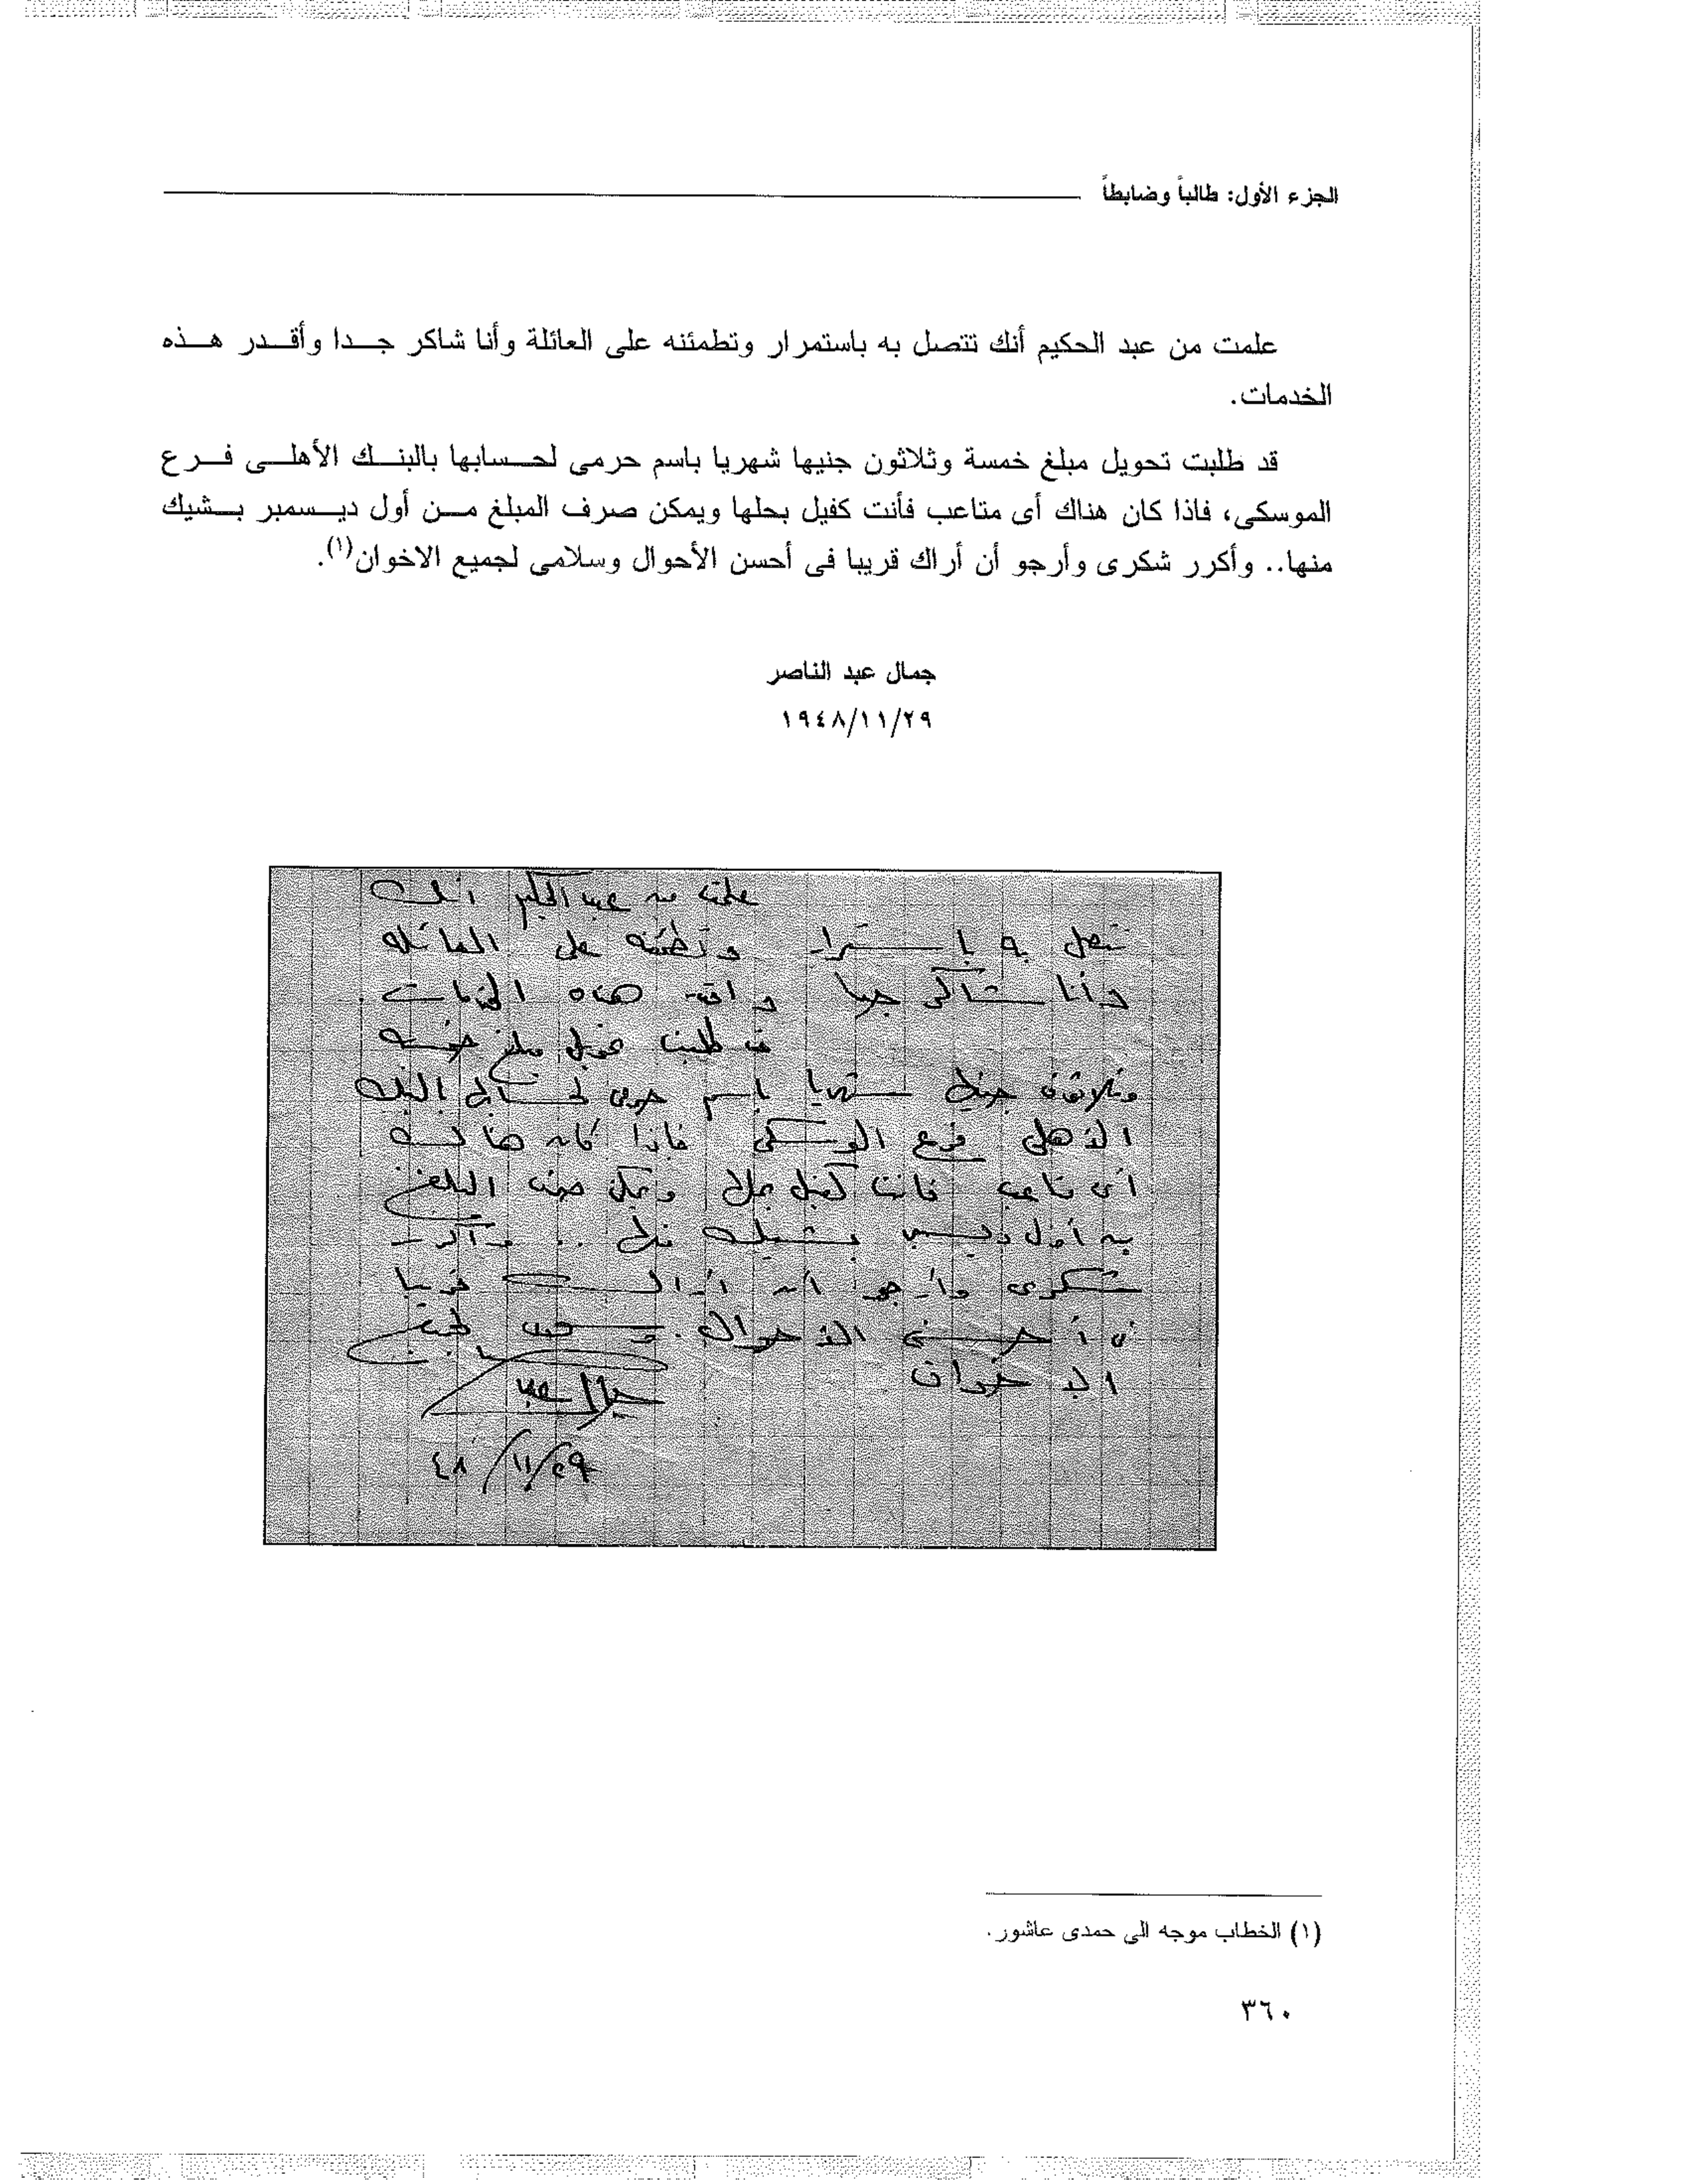 الجزء الأول: طالباً وضابطاً
علمت من عبد الحكيم أنك تتصل به باستمرار وتطمئنه على العائلة وأنا شاكر جدا وأقدر هذه
الخدمات.
قد طلبت تحويل مبلغ خمسة وثلاثون جنيها شهريا باسم حرمى لحسابها بالبنك الأهلى فرع
الموسكى، فاذا كان هناك أى متاعب فأنت كفيل بحلها ويمكن صرف المبلغ من أول ديسمبر بشيك
منها.. وأكرر شكرى وأرجو أن أراك قريبا فى أحسن الأحوال وسلامى لجميع الاخوان(١).
جمال عبد الناصر
١٩٤٨/١١/٢٩
علمت من عبد الحكيم انك
تتصل به باستمرار وتطمئنه على العائله
وأنا شاكر جدا واقدر هذه الخدمات.
قد طلبت تحويل مبلغ خمسه
وثلاثون جنيها شهريا باسم حرمى لحسابها بالبنك
الاهلى فرع الموسكى فاذا كان هناك
أى متاعب فانت كفيل بحلها ويمكن صرف المبلغ
من أول ديسمبر بشيك منها .. وأكرر
شكرى وأرجو أن أراك قريبا
فى أحسن الاحوال. لجميع
الاخوان
جمال عبد
٤٨/١١/٢٩
(١) الخطاب موجه الى حمدى عاشور.
٣٦٠